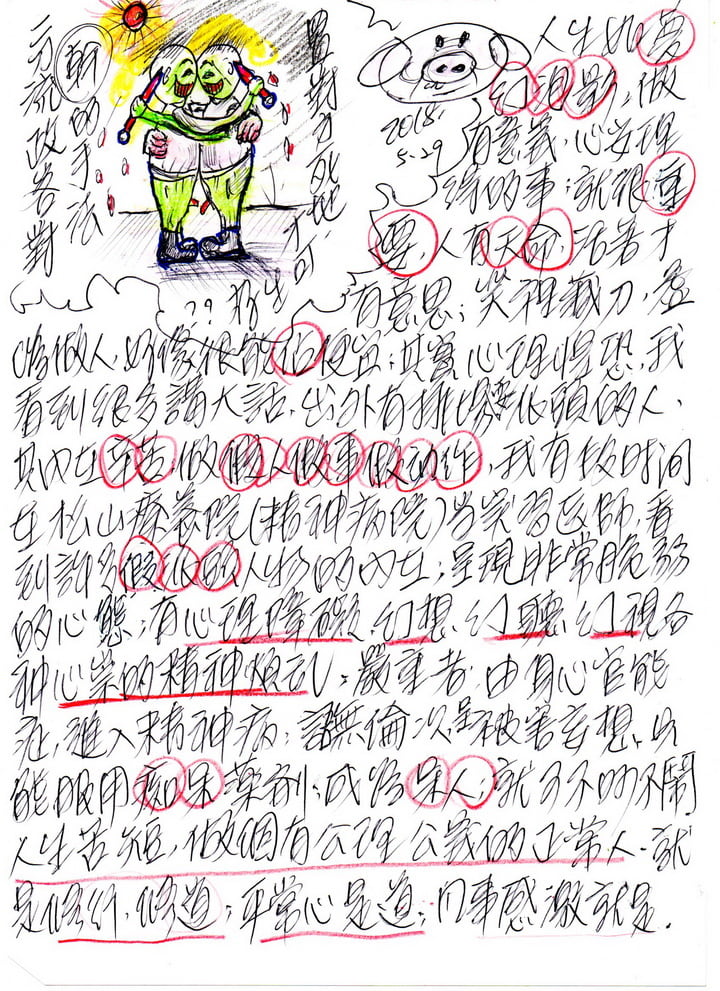 人生如夢
幻泡影,做
2018.
5.29
有意義,心安理
得的事;就很重
要,人有天命,活著才
有意思;笑裡藏刀,虛
偽做人,好像很能佔便宜;其實心理惶恐,我
看到很多講大話,出外有排場派頭的人,
其內在辛苦,做個人做事做動作,我有段时间
在松山療養院(精神病院)当实習医師,看
到許多假仙的人物的內在;呈現非常脆弱
的心態;有心理障礙,幻想,幻聽,幻視各
种心祟的精神煩乱,嚴重者,由身心官能
症,進入精神病;語無倫次,是被害妄想,只
能服用痴呆藥劑;成為呆人,就可不吵不鬧
人生苦短,做個有公理公義的正常人,就
是修行,修道;平常心是道;凡事感激就是.
置對方死地,
才可
好生??
二流政客對
斬的手法